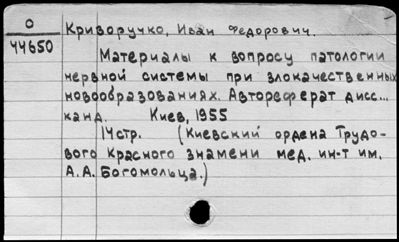 О
44650
Криворучко, Иван Федорович.
Материалы к вопросу патологии
нервной системы при злокачественных
новообразованиях. Автореферат дисс...
канд. Киев, 1955
14стр. (Киевский ордена Трудо-
вого Красного знамени мед. ин-т им.
А.А. Богомольца.)